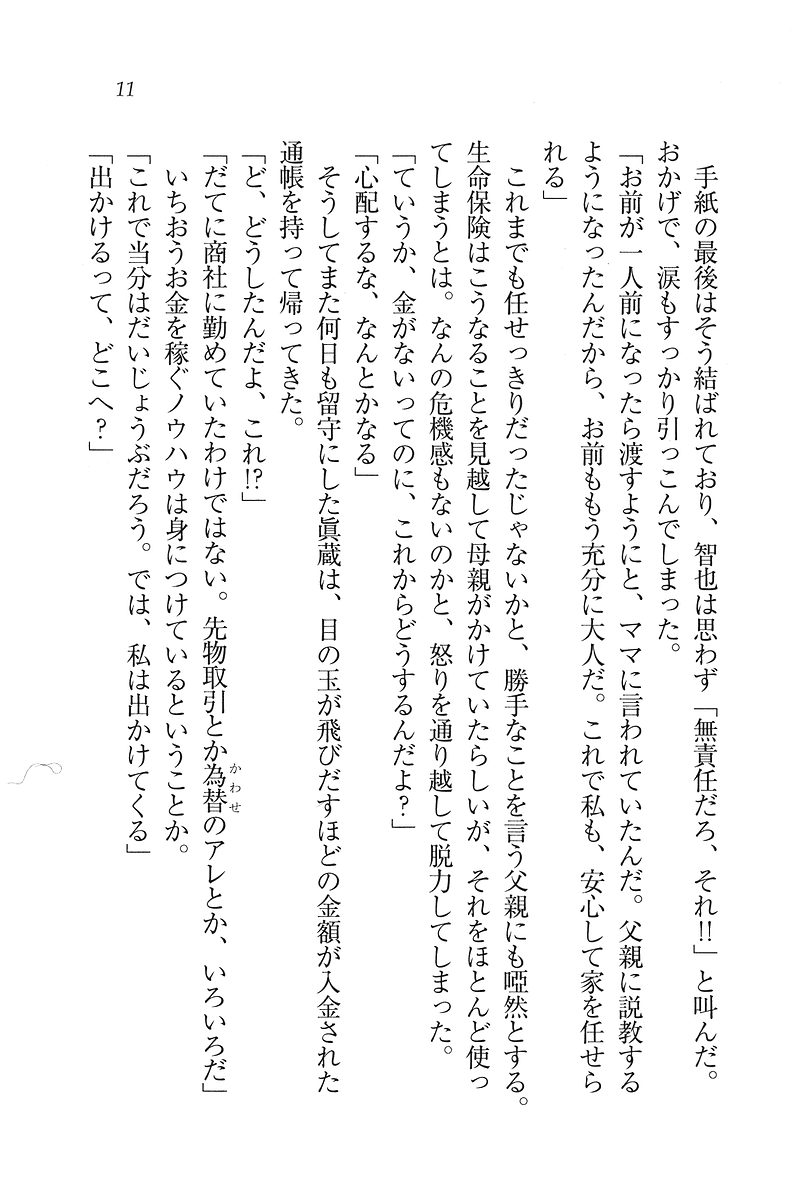 11
　手紙の最後はそう結ばれており、智也は思わず「無責任だろ、それ!!」と叫んだ。
おかげで、涙もすっかり引っこんでしまった。
「お前が一人前になったら渡すようにと、ママに言われていたんだ。父親に説教する
ようになったんだから、お前ももう充分に大人だ。これで私も、安心して家を任せら
れる」
　これまでも任せっきりだったじゃないかと、勝手なことを言う父親にも啞然とする。
生命保険はこうなることを見越して母親がかけていたらしいが、それをほとんど使っ
てしまうとは。なんの危機感もないのかと、怒りを通り越して脱力してしまった。
「ていうか、金がないってのに、これからどうするんだよ？」
「心配するな、なんとかなる」
　そうしてまた何日も留守にした眞蔵は、目の玉が飛びだすほどの金額が入金された
通帳を持って帰ってきた。
「ど、どうしたんだよ、これ!?」
「だてに商社に勤めていたわけではない。先物取引とか為替のアレとか、いろいろだ」
かわせ
　いちおうお金を稼ぐノウハウは身につけているということか。
「これで当分はだいじょうぶだろう。では、私は出かけてくる」
「出かけるって、どこへ？」